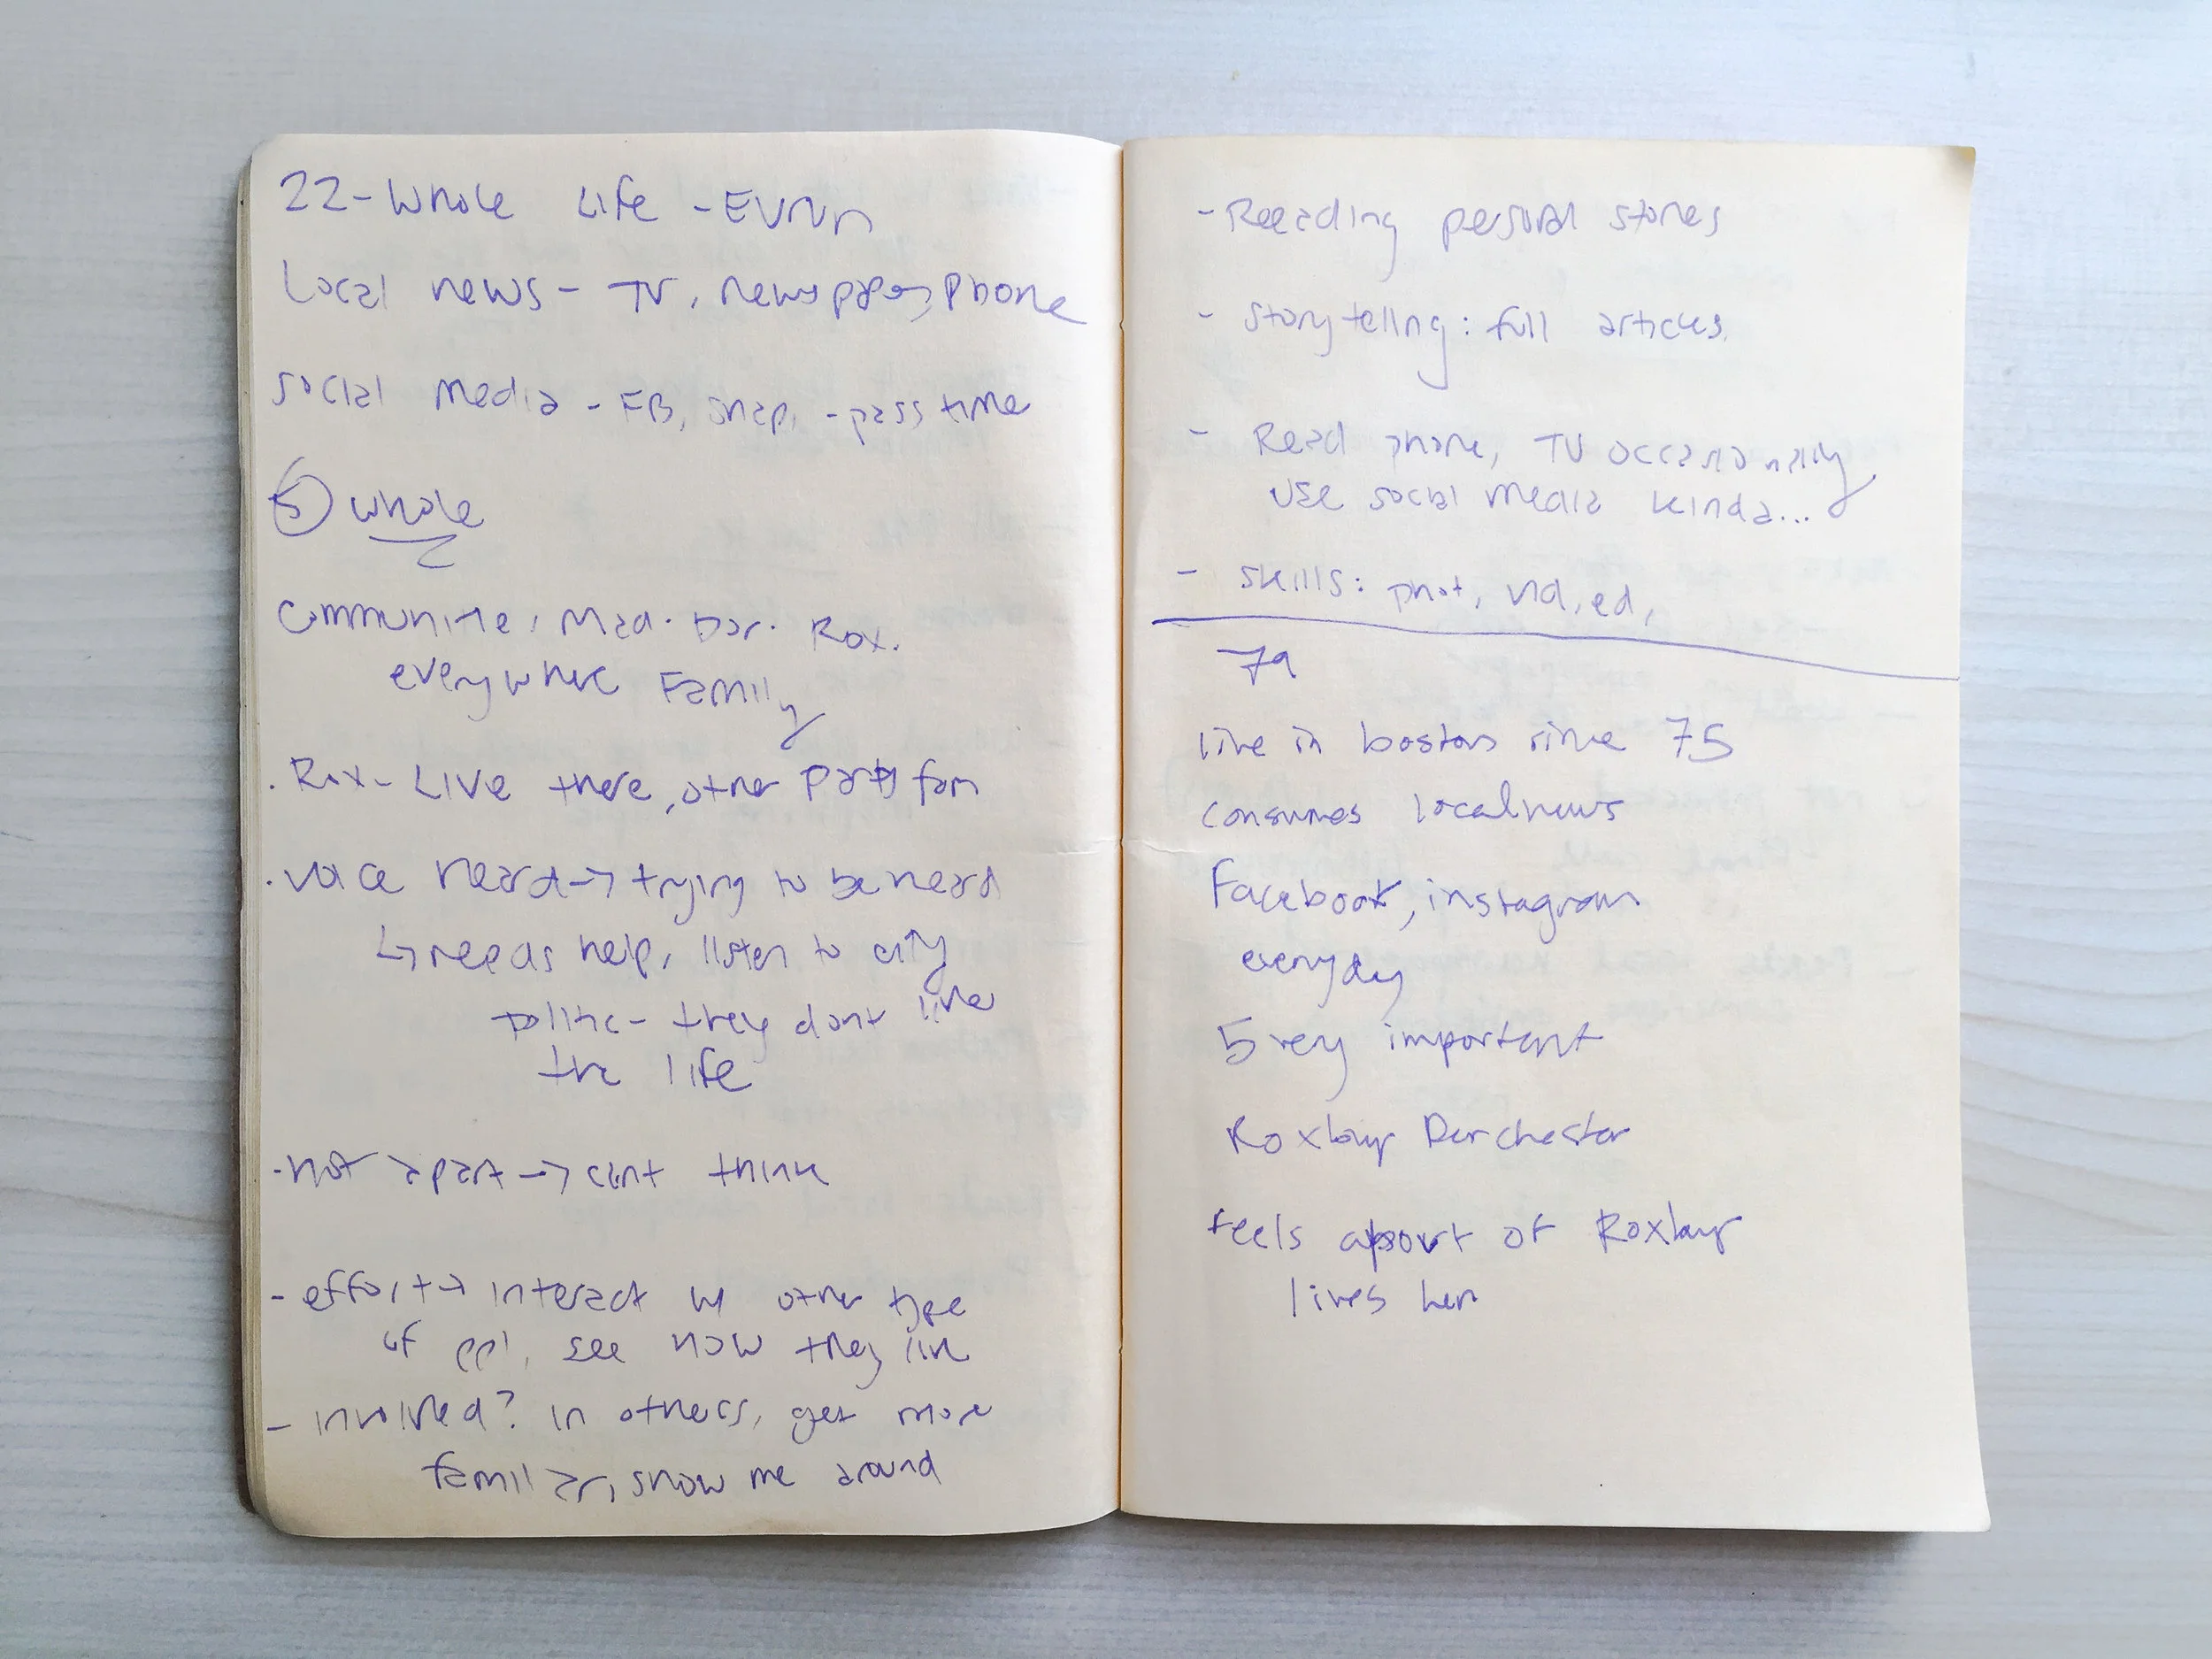 22 - Whole Life -
Local news - TV, newspaper, Phone
social media - FB, snap, - pass time
5 whole
communitie: Mad. Dor. Rox.
everywhere Family
. Rox - Live there, other parts fam
. voice heard → trying to be heard
↳ needs help, listen to city
politic - they dont live
the life
. not apart → cant think
- effort → interact w other type
of ppl, see how they live
- involved? in others, get more
familiar, show me around
- Reeading personal stories
- storytelling: full articles.
- Read phone, TV occasionally
use social media kinda...
- skills: phot, vid, ed,
79
live in boston since 75
consumes local news
Facebook, instagram
everyday
5 very important
Roxbury Dorchester
feels apart of Roxbury
lives her